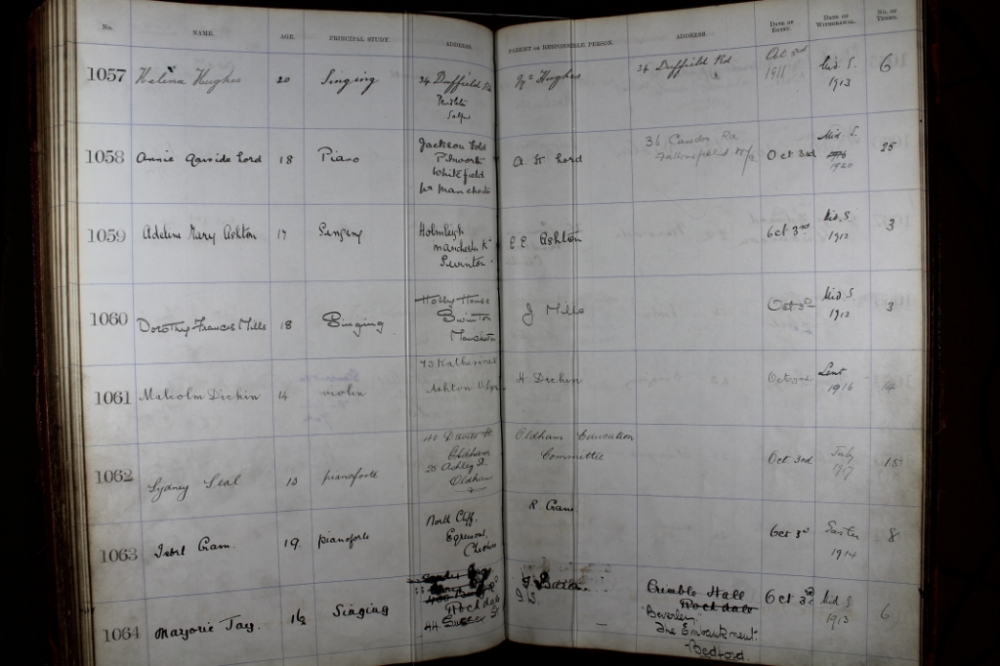 No. NAME. AGE. PRINCIPAL STUDY. ADDRESS. PARENT OR RESPONSIBLE PERSON. ADDRESS. DATE OF ENTRY. DATE OF WITHDRAWAL. No. OF TERMS.
1057 Helina Hughes 20 Singing 34 Duffield Rd Hughes 34 Duffield Rd Oct 3rd 1911 Mid. S. 1913 6
1058 Annie Garside Lord 18 Piano Jackson Fold
Pilsworth
Whitefield
Nr Manchester A. Lord Oct 3rd Mid. S.
1920 25
1059 Adeline Mary Ashton 17 Singing Holmleigh
Manchester Rd
Swinton. E E Ashton Oct 3rd Mid. S.
1912 3
1060 Dorothy Frances Mills 18 Singing Holly House
Swinton
Manchester J Mills Oct 3rd Mid S.
1912 3
1061 Malcolm Dickin 14 violin 73 Katherine
Ashton H. Dickin Oct 3rd Lent
1916 14
1062 Sydney Seal 13 pianoforte
Oldham
25 Ashley St
Oldham Oldham Education
Committee Oct 3rd July
1917
1063 Cram. 19. pianoforte North Cliff,
Egremont,
Cheshire R. Cram Oct 3rd Easter
1914 8
1064 Marjorie Tay. 16½ Singing
Rochdale
44 Sussex St Crimble Hall
Rochdale
Beverley,
The Embankment.
Bedford. Oct 3rd Mid S
1913 6